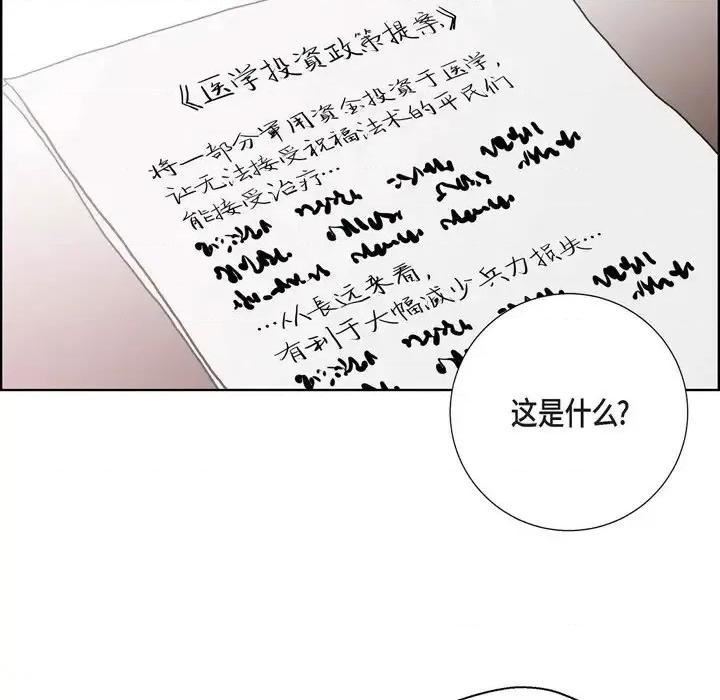 《医学投资政策提案》
将一部分军用资金投资于医学，
让无法接受祝福法术的平民们
能接受治疗…
…从長远来看，
有利于大幅减少兵力损失…
这是什么?